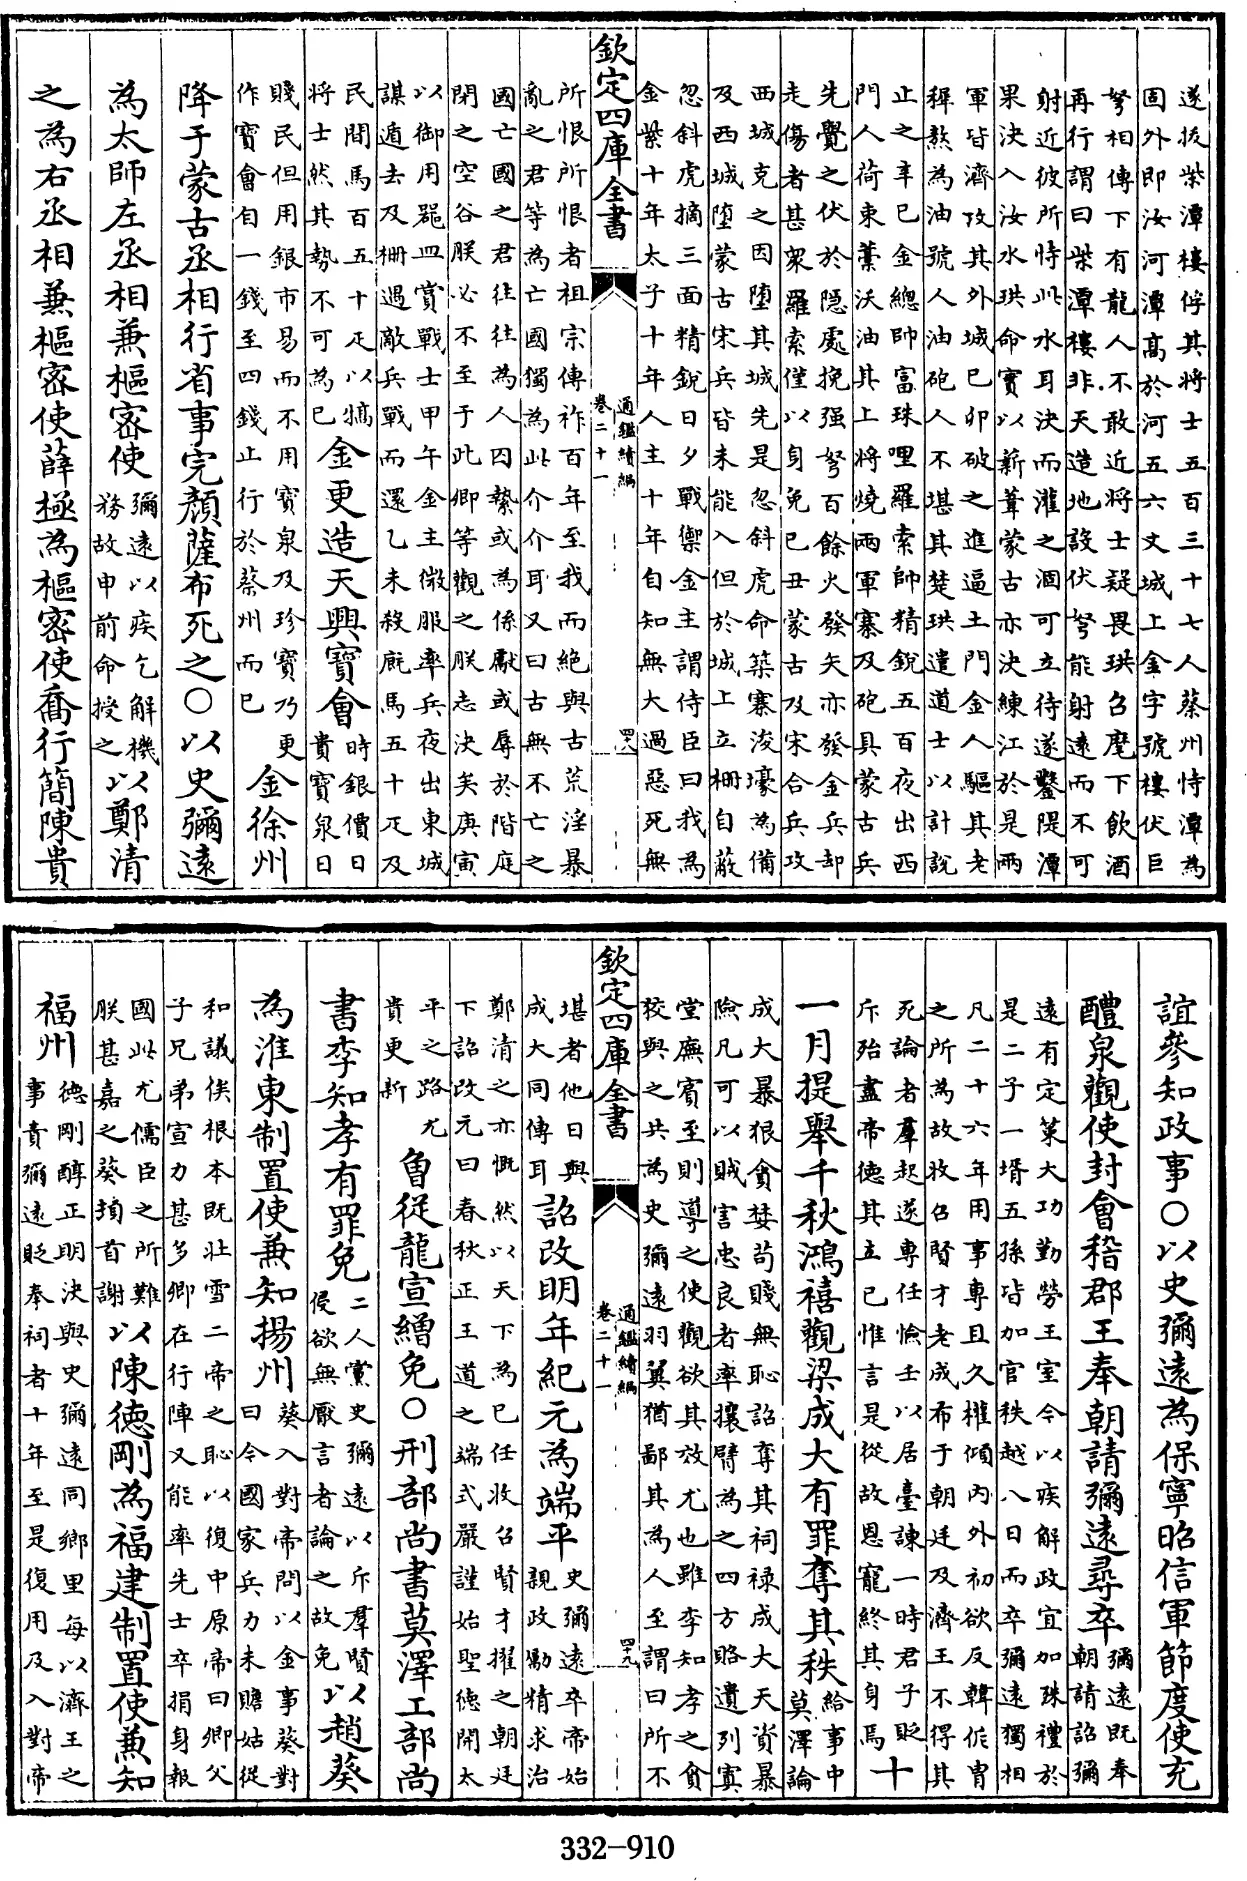 遂拔柴潭樓俘其將士五百三十七人蔡州恃潭為
固外即汝河潭高於河五六丈城上金字號樓伏巨
弩相傳下有龍人不敢近將士疑畏珙召麾下飲酒
再行謂曰柴潭樓非天造地設伏弩能射遠而不可
射近彼所恃此水耳決而灌之涸可立待遂鑿隄潭
果決入汝水珙命實以薪葦蒙古亦決練江於是兩
軍皆濟攻其外城已卯破之進逼土門金人驅其老
稺熬為油號人油砲人不堪其楚珙遣道士以計說
止之辛巳金總帥富珠哩羅索帥精銳五百夜出西
門人荷束藁沃油其上將燒兩軍寨及砲具蒙古兵
先覺之伏於隱處挽强弩百餘火發矢亦發金兵却
走傷者甚衆羅索僅以身免已丑蒙古及宋合兵攻
西城克之因堕其城先是忽斜虎命築寨浚壕為備
及西城堕蒙古宋兵皆未能入但於城上立柵自蔽
忽斜虎摘三面精銳日夕戰禦金主謂侍臣曰我為
金紫十年太子十年人主十年自知無大過惡死無
欽定四庫全書
通鑑續編
卷二十一
四八
所恨所恨者祖宗傳祚百年至我而絶與古荒淫暴
亂之君等為亡國獨為此介介耳又曰古無不亡之
國亡國之君往往為人囚縶或為係獻或辱於階庭
閉之空谷朕必不至于此卿等觀之朕志決矣庚寅
以御用噐皿賞戰士甲午金主微服率兵夜出東城
謀遁去及柵遇敵兵戰而還乙未殺厩馬五十疋及
民間馬百五十疋以犒
將士然其勢不可為已
金更造天興寶會
時銀價日
貴寶泉日
賤民但用銀市易而不用寶泉及珍寶乃更
作寶會自一錢至四錢止行於蔡州而已
金徐州
降于蒙古丞相行省事完顔薩布死之○以史彌遠
為太師左丞相兼樞密使
彌遠以疾乞解機
務故申前命授之
以鄭清
之為右丞相兼樞密使薛極為樞密使喬行簡陳貴
誼參知政事○以史彌遠為保寧昭信軍節度使充
醴泉觀使封會稽郡王奉朝請彌遠尋卒
彌遠既奉
朝請詔彌
遠有定策大功勤勞王室今以疾解政宜加殊禮於
是二子一壻五孫皆加官秩越八日而卒彌遠獨相
凡二十六年用事專且久權傾內外初欲反韓侂冑
之所為故收召賢才老成布于朝廷及濟王不得其
死論者羣起遂專任憸壬以居臺諫一時君子貶
斥殆盡帝德其立已惟言是從故恩寵終其身焉
十
一月提舉千秋鴻禧觀梁成大有罪奪其秩
給事中
莫澤論
成大暴狠貪婪苟賤無恥詔奪其祠祿成大天資暴
險凡可以賊害忠良者率攘臂為之四方賂遺列寘
堂廡賓至則導之使觀欲其效尤也雖李知孝之貪
狡與之共為史彌遠羽翼猶鄙其為人至謂曰所不
欽定四庫全書
通鑑續編
卷二十一
四十九
堪者他日與
成大同傳耳
詔改明年紀元為端平
史彌遠卒帝始
親政勵精求治
鄭清之亦慨然以天下為已任收召賢才擢之朝廷
下詔改元曰春秋正王道之端式嚴謹始聖德開太
平之路尤
貴更新
魯從龍宣繒免○刑部尚書莫澤工部尚
書李知孝有罪免
二人黨史彌遠以斥羣賢
侵欲無厭言者論之故免
以趙葵
為淮東制置使兼知揚州
葵入對帝問以金事葵對
曰今國家兵力未贍姑從
和議俟根本既壯雪二帝之恥以復中原帝曰卿父
子兄弟宣力甚多卿在行陣又能率先士卒捐身報
國此尤儒臣之所難
朕甚嘉之葵頓首謝
以陳德剛為福建制置使兼知
福州
德剛醇正明決與史彌遠同鄉里每以濟王之
事責彌遠貶奉祠者十年至是復用及入對帝
332-910